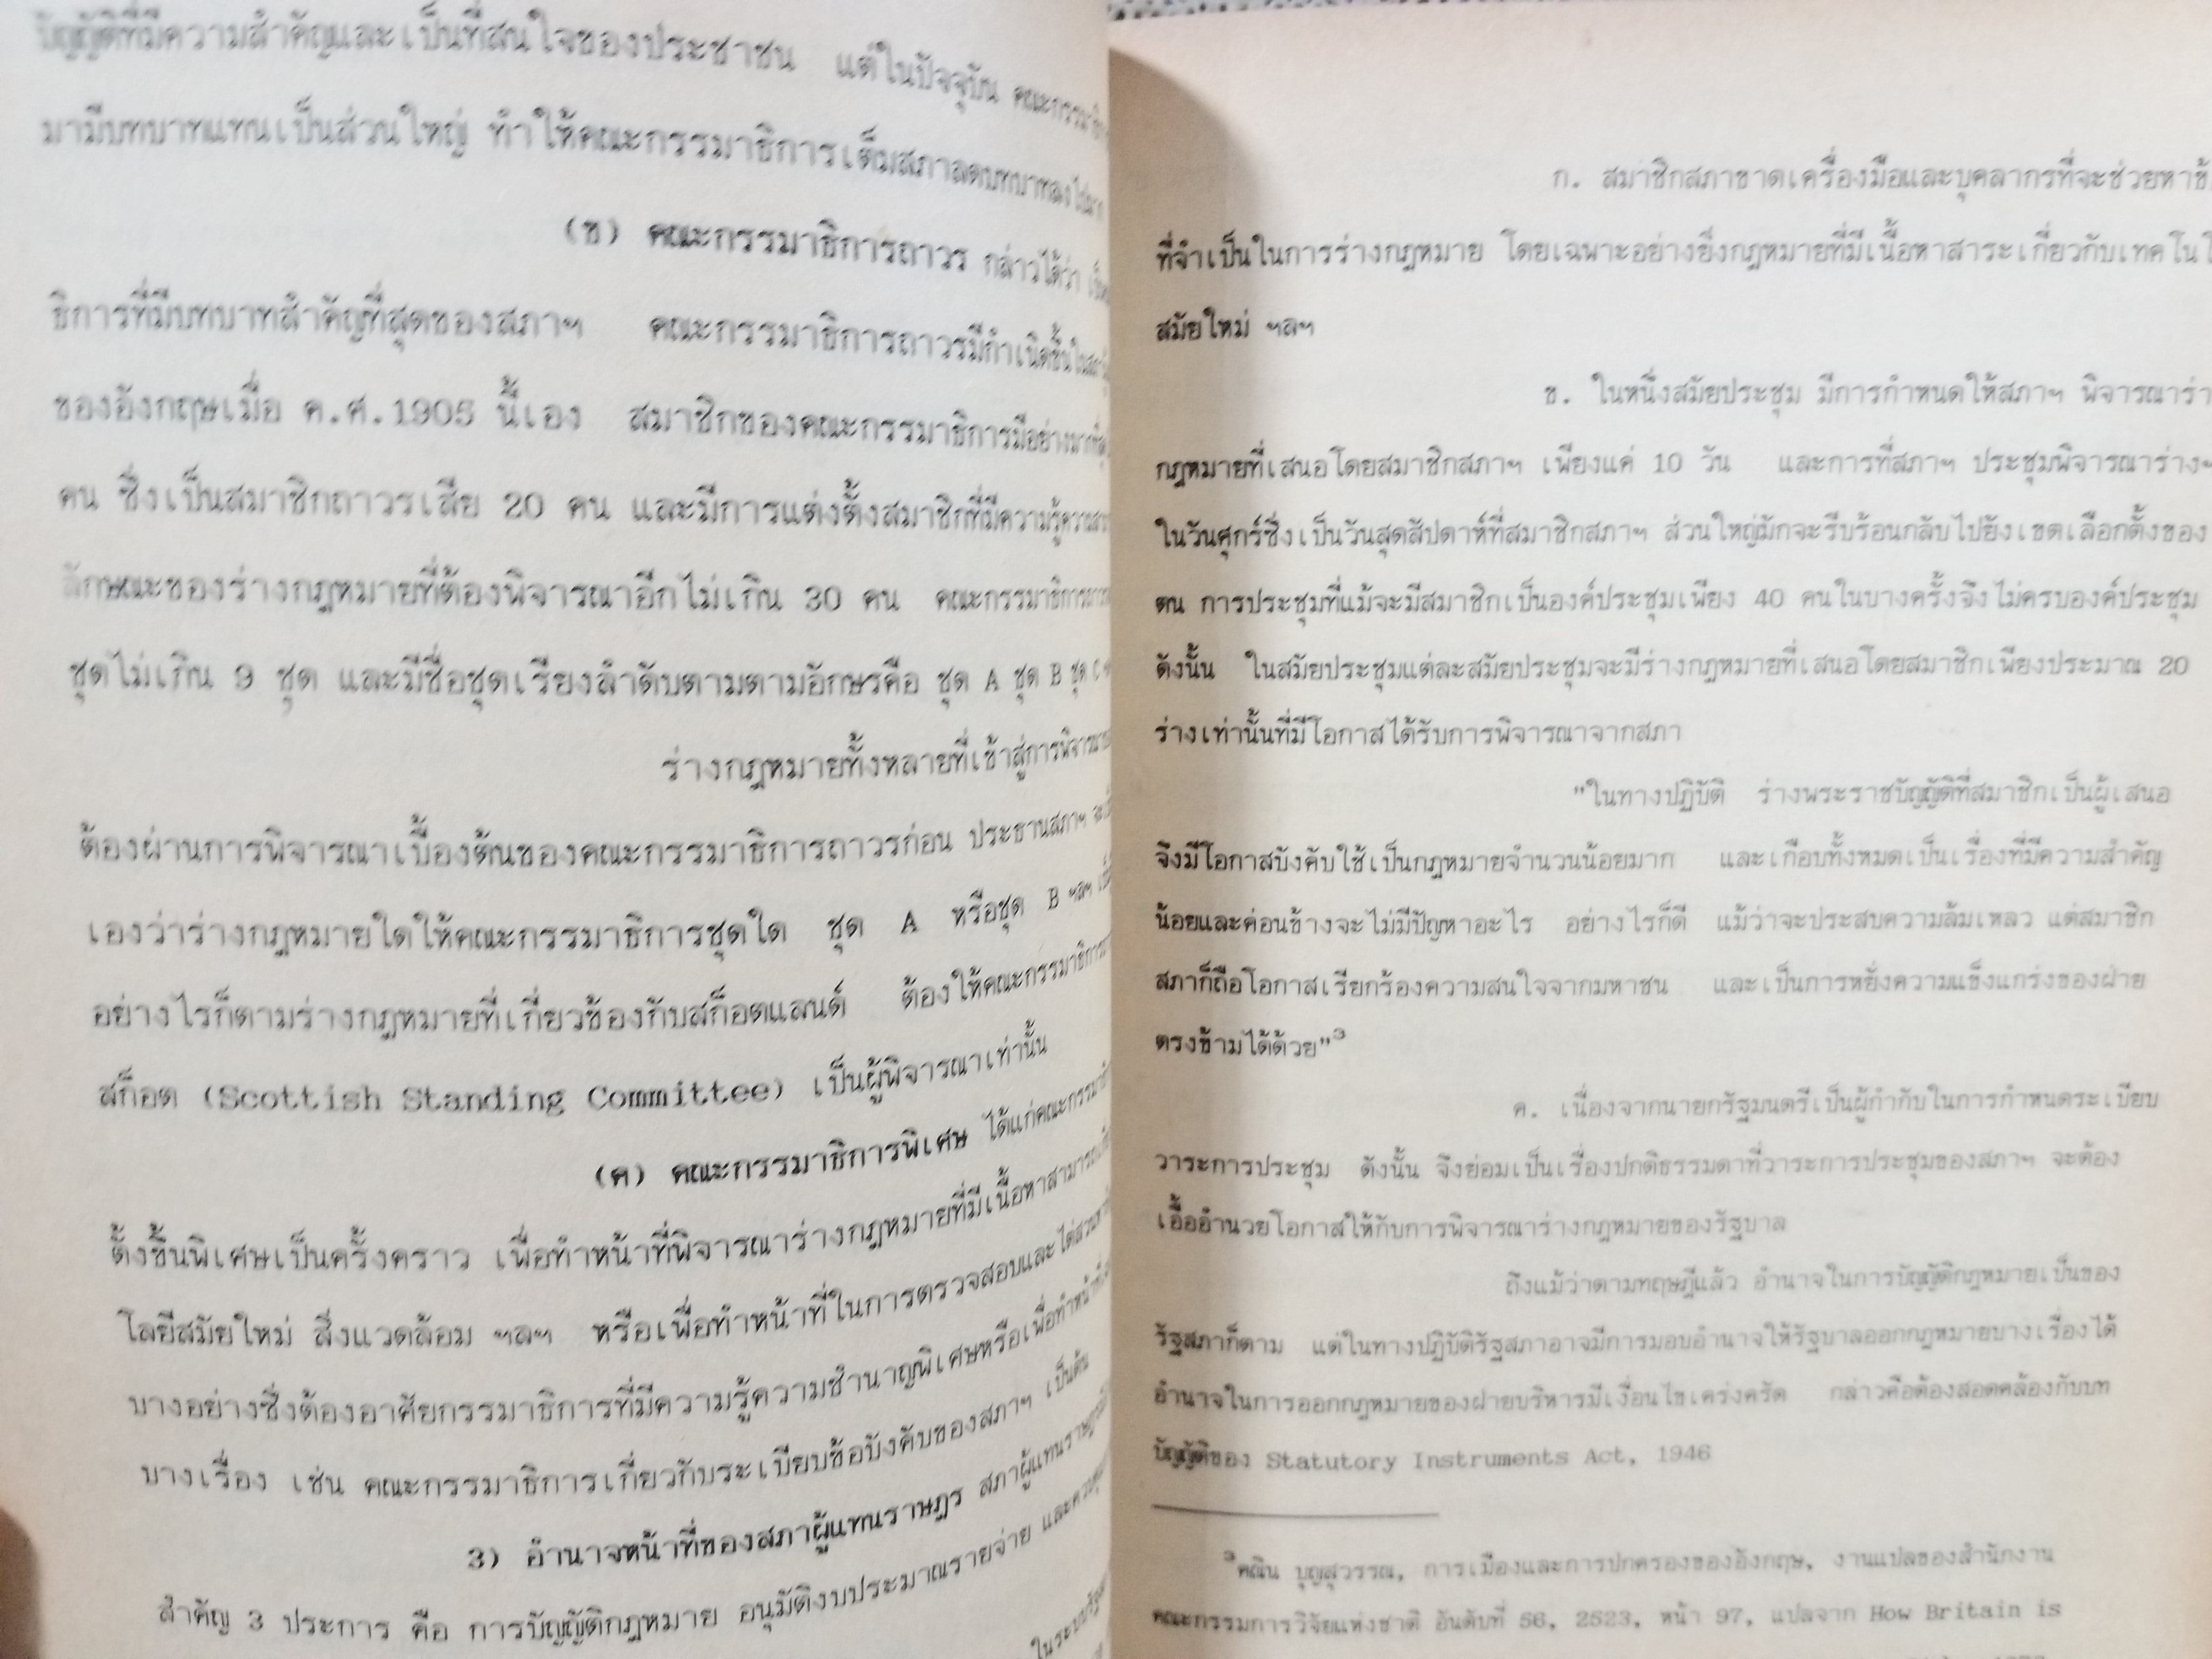 บัญญัติที่มีความสำคัญและเป็นที่สนใจของประชาชน แต่ในปัจจุบัน
มามีบทบาทแทนเป็นส่วนใหญ่ ทำให้คณะกรรมาธิการเต็มสภาลดบทบาทลงไปมาก
(ข) คณะกรรมาธิการถาวร กล่าวได้ว่า
ธิการที่มีบทบาทสำคัญที่สุดของสภาฯ คณะกรรมาธิการถาวรมีกำเนิดขึ้นใน
ของอังกฤษเมื่อ ค.ศ.1905 นี้เอง สมาชิกของคณะกรรมาธิการมีอย่างมากที่สุด
คน ซึ่งเป็นสมาชิกถาวรเสีย 20 คน และมีการแต่งตั้งสมาชิกที่มีความรู้
ลักษณะของร่างกฎหมายที่ต้องพิจารณาอีกไม่เกิน 30 คน คณะกรรมาธิการ
ชุดไม่เกิน 9 ชุด และมีชื่อชุดเรียงลำดับตามตามอักษรคือ ชุด A ชุด B ชุด C
ร่างกฎหมายทั้งหลายที่เข้าสู่การพิจารณา
ต้องผ่านการพิจารณาเบื้องต้นของคณะกรรมาธิการถาวรก่อน ประธานสภาฯ
เองว่าร่างกฎหมายใดให้คณะกรรมาธิการชุดใด ชุด A หรือชุด B ฯลฯ
อย่างไรก็ตามร่างกฎหมายที่เกี่ยวข้องกับสก็อตแลนด์ ต้องให้คณะกรรมาธิการ
สก็อต (Scottish Standing Committee) เป็นผู้พิจารณาเท่านั้น
(ค) คณะกรรมาธิการพิเศษ ได้แก่
ตั้งขึ้นพิเศษเป็นครั้งคราว เพื่อทำหน้าที่พิจารณาร่างกฎหมายที่มีเนื้อหาสาระ
โลยีสมัยใหม่ สิ่งแวดล้อม ฯลฯ หรือเพื่อทำหน้าที่ในการตรวจสอบและไต่สวน
บางอย่างซึ่งต้องอาศัยกรรมาธิการที่มีความรู้ความชำนาญพิเศษหรือเพื่อทำหน้าที่
บางเรื่อง เช่น คณะกรรมาธิการเกี่ยวกับระเบียบข้อบังคับของสภาฯ เป็นต้น
3) อำนาจหน้าที่ของสภาผู้แทนราษฎร สภาผู้แทนราษฎร
สำคัญ 3 ประการ คือ การบัญญัติกฎหมาย อนุมัติงบประมาณรายจ่าย และควบคุม
ในระบบรัฐสภา
ก. สมาชิกสภาขาดเครื่องมือและบุคลากรที่จะช่วยหา
ที่จำเป็นในการร่างกฎหมาย โดยเฉพาะอย่างยิ่งกฎหมายที่มีเนื้อหาสาระเกี่ยวกับเทคโนโ
สมัยใหม่ ฯลฯ
ข. ในหนึ่งสมัยประชุม มีการกำหนดให้สภาฯ พิจารณาร่า
กฎหมายที่เสนอโดยสมาชิกสภาฯ เพียงแค่ 10 วัน และการที่สภาฯ ประชุมพิจารณาร่างฯ
ในวันศุกร์ซึ่งเป็นวันสุดสัปดาห์ที่สมาชิกสภาฯ ส่วนใหญ่มักจะรีบร้อนกลับไปยังเขตเลือกตั้งของ
ตน การประชุมที่แม้จะมีสมาชิกเป็นองค์ประชุมเพียง 40 คนในบางครั้งจึงไม่ครบองค์ประชุม
ดังนั้น ในสมัยประชุมแต่ละสมัยประชุมจะมีร่างกฎหมายที่เสนอโดยสมาชิกเพียงประมาณ 20
ร่างเท่านั้นที่มีโอกาสได้รับการพิจารณาจากสภา
"ในทางปฏิบัติ ร่างพระราชบัญญัติที่สมาชิกเป็นผู้เสนอ
จึงมีโอกาสบังคับใช้เป็นกฎหมายจำนวนน้อยมาก และเกือบทั้งหมดเป็นเรื่องที่มีความสำคัญ
น้อยและค่อนข้างจะไม่มีปัญหาอะไร อย่างไรก็ดี แม้ว่าจะประสบความล้มเหลว แต่สมาชิก
สภาก็ถือโอกาสเรียกร้องความสนใจจากมหาชน และเป็นการหยั่งความแข็งแกร่งของฝ่าย
ตรงข้ามได้ด้วย"3
ค. เนื่องจากนายกรัฐมนตรีเป็นผู้กำกับในการกำหนดระเบียบ
วาระการประชุม ดังนั้น จึงย่อมเป็นเรื่องปกติธรรมดาที่วาระการประชุมของสภาฯ จะต้อง
เอื้ออำนวยโอกาสให้กับการพิจารณาร่างกฎหมายของรัฐบาล
ถึงแม้ว่าตามทฤษฎีแล้ว อำนาจในการบัญญัติกฎหมายเป็นของ
รัฐสภาก็ตาม แต่ในทางปฏิบัติรัฐสภาอาจมีการมอบอำนาจให้รัฐบาลออกกฎหมายบางเรื่องได้
อำนาจในการออกกฎหมายของฝ่ายบริหารมีเงื่อนไขเคร่งครัด กล่าวคือต้องสอดคล้องกับบท
บัญญัติของ Statutory Instruments Act, 1946
3คณิน บุญสุวรรณ, การเมืองและการปกครองของอังกฤษ, งานแปลของสำนักงาน
คณะกรรมการวิจัยแห่งชาติ อันดับที่ 56, 2523, หน้า 97, แปลจาก How Britain is